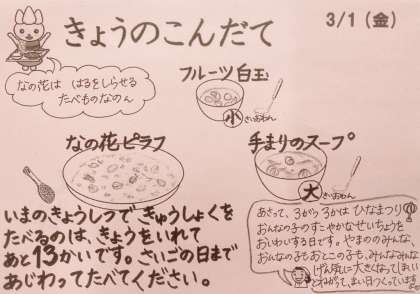 きょうのこんだて
3/1 (金)
なの花は はるをしらせる
たべものなのん
フルーツ白玉
小
さいおわん
なの花ピラフ
手まりのスープ
大
さいおわん
いまのきょうしつで、きゅうしょくを
たべるのは、きょうをいれて
あと13かいです。さいごの日まで
あじわってたべてください。
あさって、3がつ3かは ひなまつり
おんなの子のすこやかなせいちょうを
おいわいする日です。やまののみんな、
おんなの子もおとこの子も、みんなみんな
げん気に大きくなってほしい
とねがって、まい日つくっています